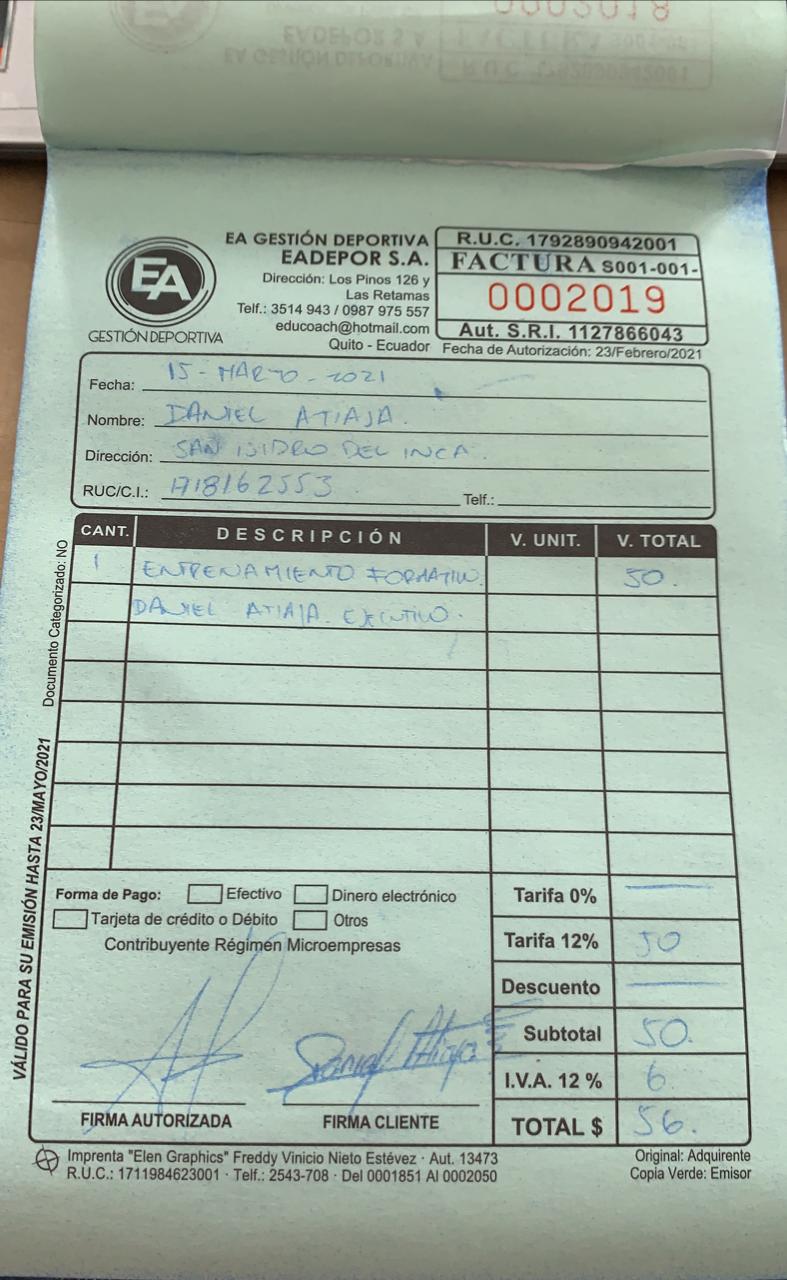 0002018
EADEPOR S.A.
FACTURA S001-001-
EA GESTIÓN DEPORTIVA
R.U.C. 1792890942001
EA
GESTIÓN DEPORTIVA
EA GESTIÓN DEPORTIVA
EADEPOR S.A.
Dirección: Los Pinos 126 y
Las Retamas
Telf.: 3514 943 / 0987 975 557
educoach@hotmail.com
Quito - Ecuador
R.U.C. 1792890942001
FACTURA S001-001-
0002019
Aut. S.R.I. 1127866043
Fecha de Autorización: 23/Febrero/2021
Fecha: 15 - MARZO - 2021
Nombre: DANIEL ATIAJA.
Dirección: SAN ISIDRO DEL INCA.
RUC/C.I.: 1718162553 Telf.:
CANT. DESCRIPCIÓN V. UNIT. V. TOTAL
1 ENTRENAMIENTO FORMATIVO. 50.
DANIEL ATIAJA. EJECUTIVO.
Documento Categorizado: NO
VÁLIDO PARA SU EMISIÓN HASTA 23/MAYO/2021
Forma de Pago: Efectivo Dinero electrónico
Tarjeta de crédito o Débito Otros
Contribuyente Régimen Microempresas
Tarifa 0% —
Tarifa 12% 50
Descuento —
Subtotal 50.
I.V.A. 12 % 6
TOTAL $ 56.
Daniel Atiaja
FIRMA AUTORIZADA FIRMA CLIENTE
Imprenta "Elen Graphics" Freddy Vinicio Nieto Estévez · Aut. 13473
R.U.C.: 1711984623001 · Telf.: 2543-708 · Del 0001851 Al 0002050
Original: Adquirente
Copia Verde: Emisor